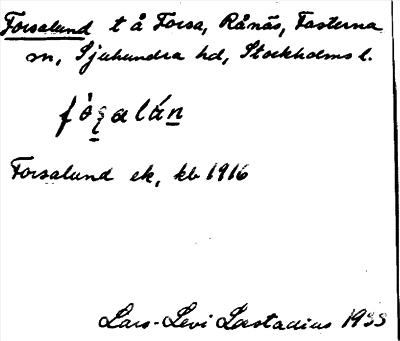 Forsalund t å Forsa, Rånäs, Fasterna
sn, Sjuhundra hd, Stockholms l.
Forsalund ek, kb 1916
Lars-Levi Læstadius 1933